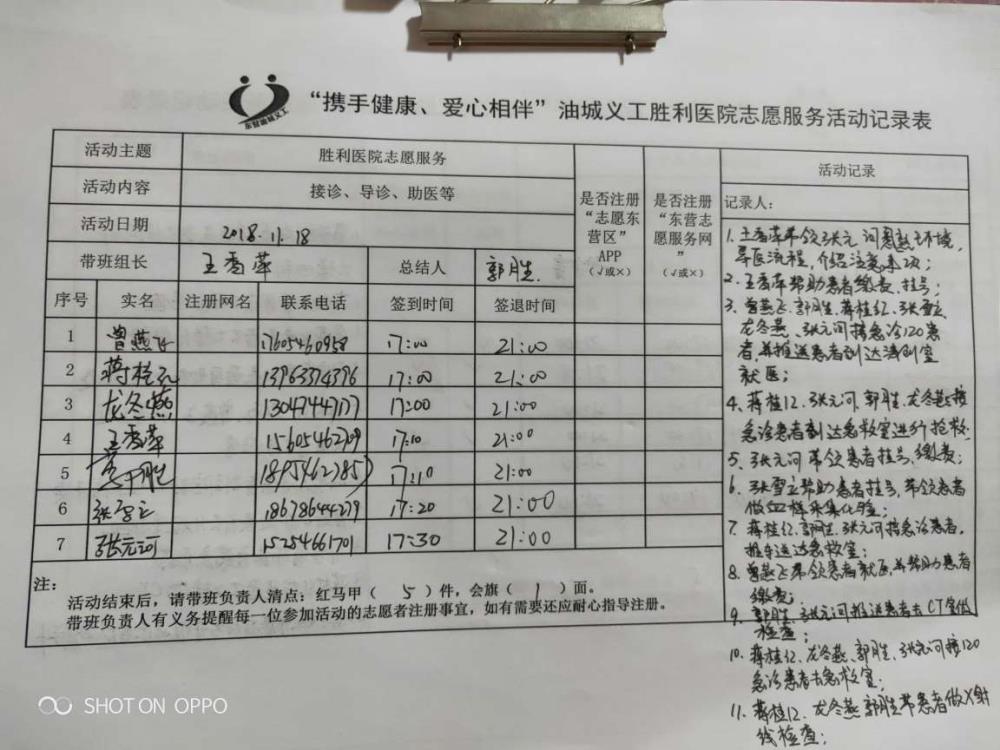 东营油城义工
“携手健康、爱心相伴”油城义工胜利医院志愿服务活动记录表
活动主题 胜利医院志愿服务
活动内容 接诊、导诊、助医等
活动日期 2018.11.18
带班组长 王秀萍 总结人 郭胜
是否注册
“志愿东
营区”
APP
(√或×)
是否注册
“东营志
愿服务网
”
(√或×)
序号 实名 注册网名 联系电话 签到时间 签退时间
1 曾燕飞 17605460958 17:00 21:00
2 蒋桂红 13963374396 17:00 21:00
3 龙冬燕 13047447177 17:00 21:00
4 王秀萍 15605462709 17:10 21:00
5 郭胜 18954627857 17:10 21:00
6 张雪立 18678644279 17:20 21:00
7 张元河 15254661701 17:30 21:00
注:
活动结束后,请带班负责人清点:红马甲( 5 )件,会旗( 1 )面。
带班负责人有义务提醒每一位参加活动的志愿者注册事宜,如有需要还应耐心指导注册。
活动记录
记录人:
1、王秀萍带领张元河熟悉环境,
导医流程,介绍注意事项;
2、王秀萍帮助患者缴费、挂号;
3、曾燕飞、郭胜、蒋桂红、张雪立、
龙冬燕、张元河接急诊120患
者,并推送患者到达清创室
就医;
4、蒋桂红、张元河、郭胜、龙冬燕接
急诊患者到达急救室进行抢救;
5、张元河带领患者挂号,缴费;
6、张雪立帮助患者挂号,带领患者
做血样采集化验;
7、蒋桂红、郭胜、张元河接急诊患者,
推车运达急救室;
8、曾燕飞带领患者就医,并帮助患者
缴费;
9、郭胜、张元河推送患者去CT室做
检查;
10、蒋桂红、龙冬燕、郭胜、张元河接120
急诊患者去急救室;
11、蒋桂红、龙冬燕、郭胜带患者做X射
线检查;
SHOT ON OPPO